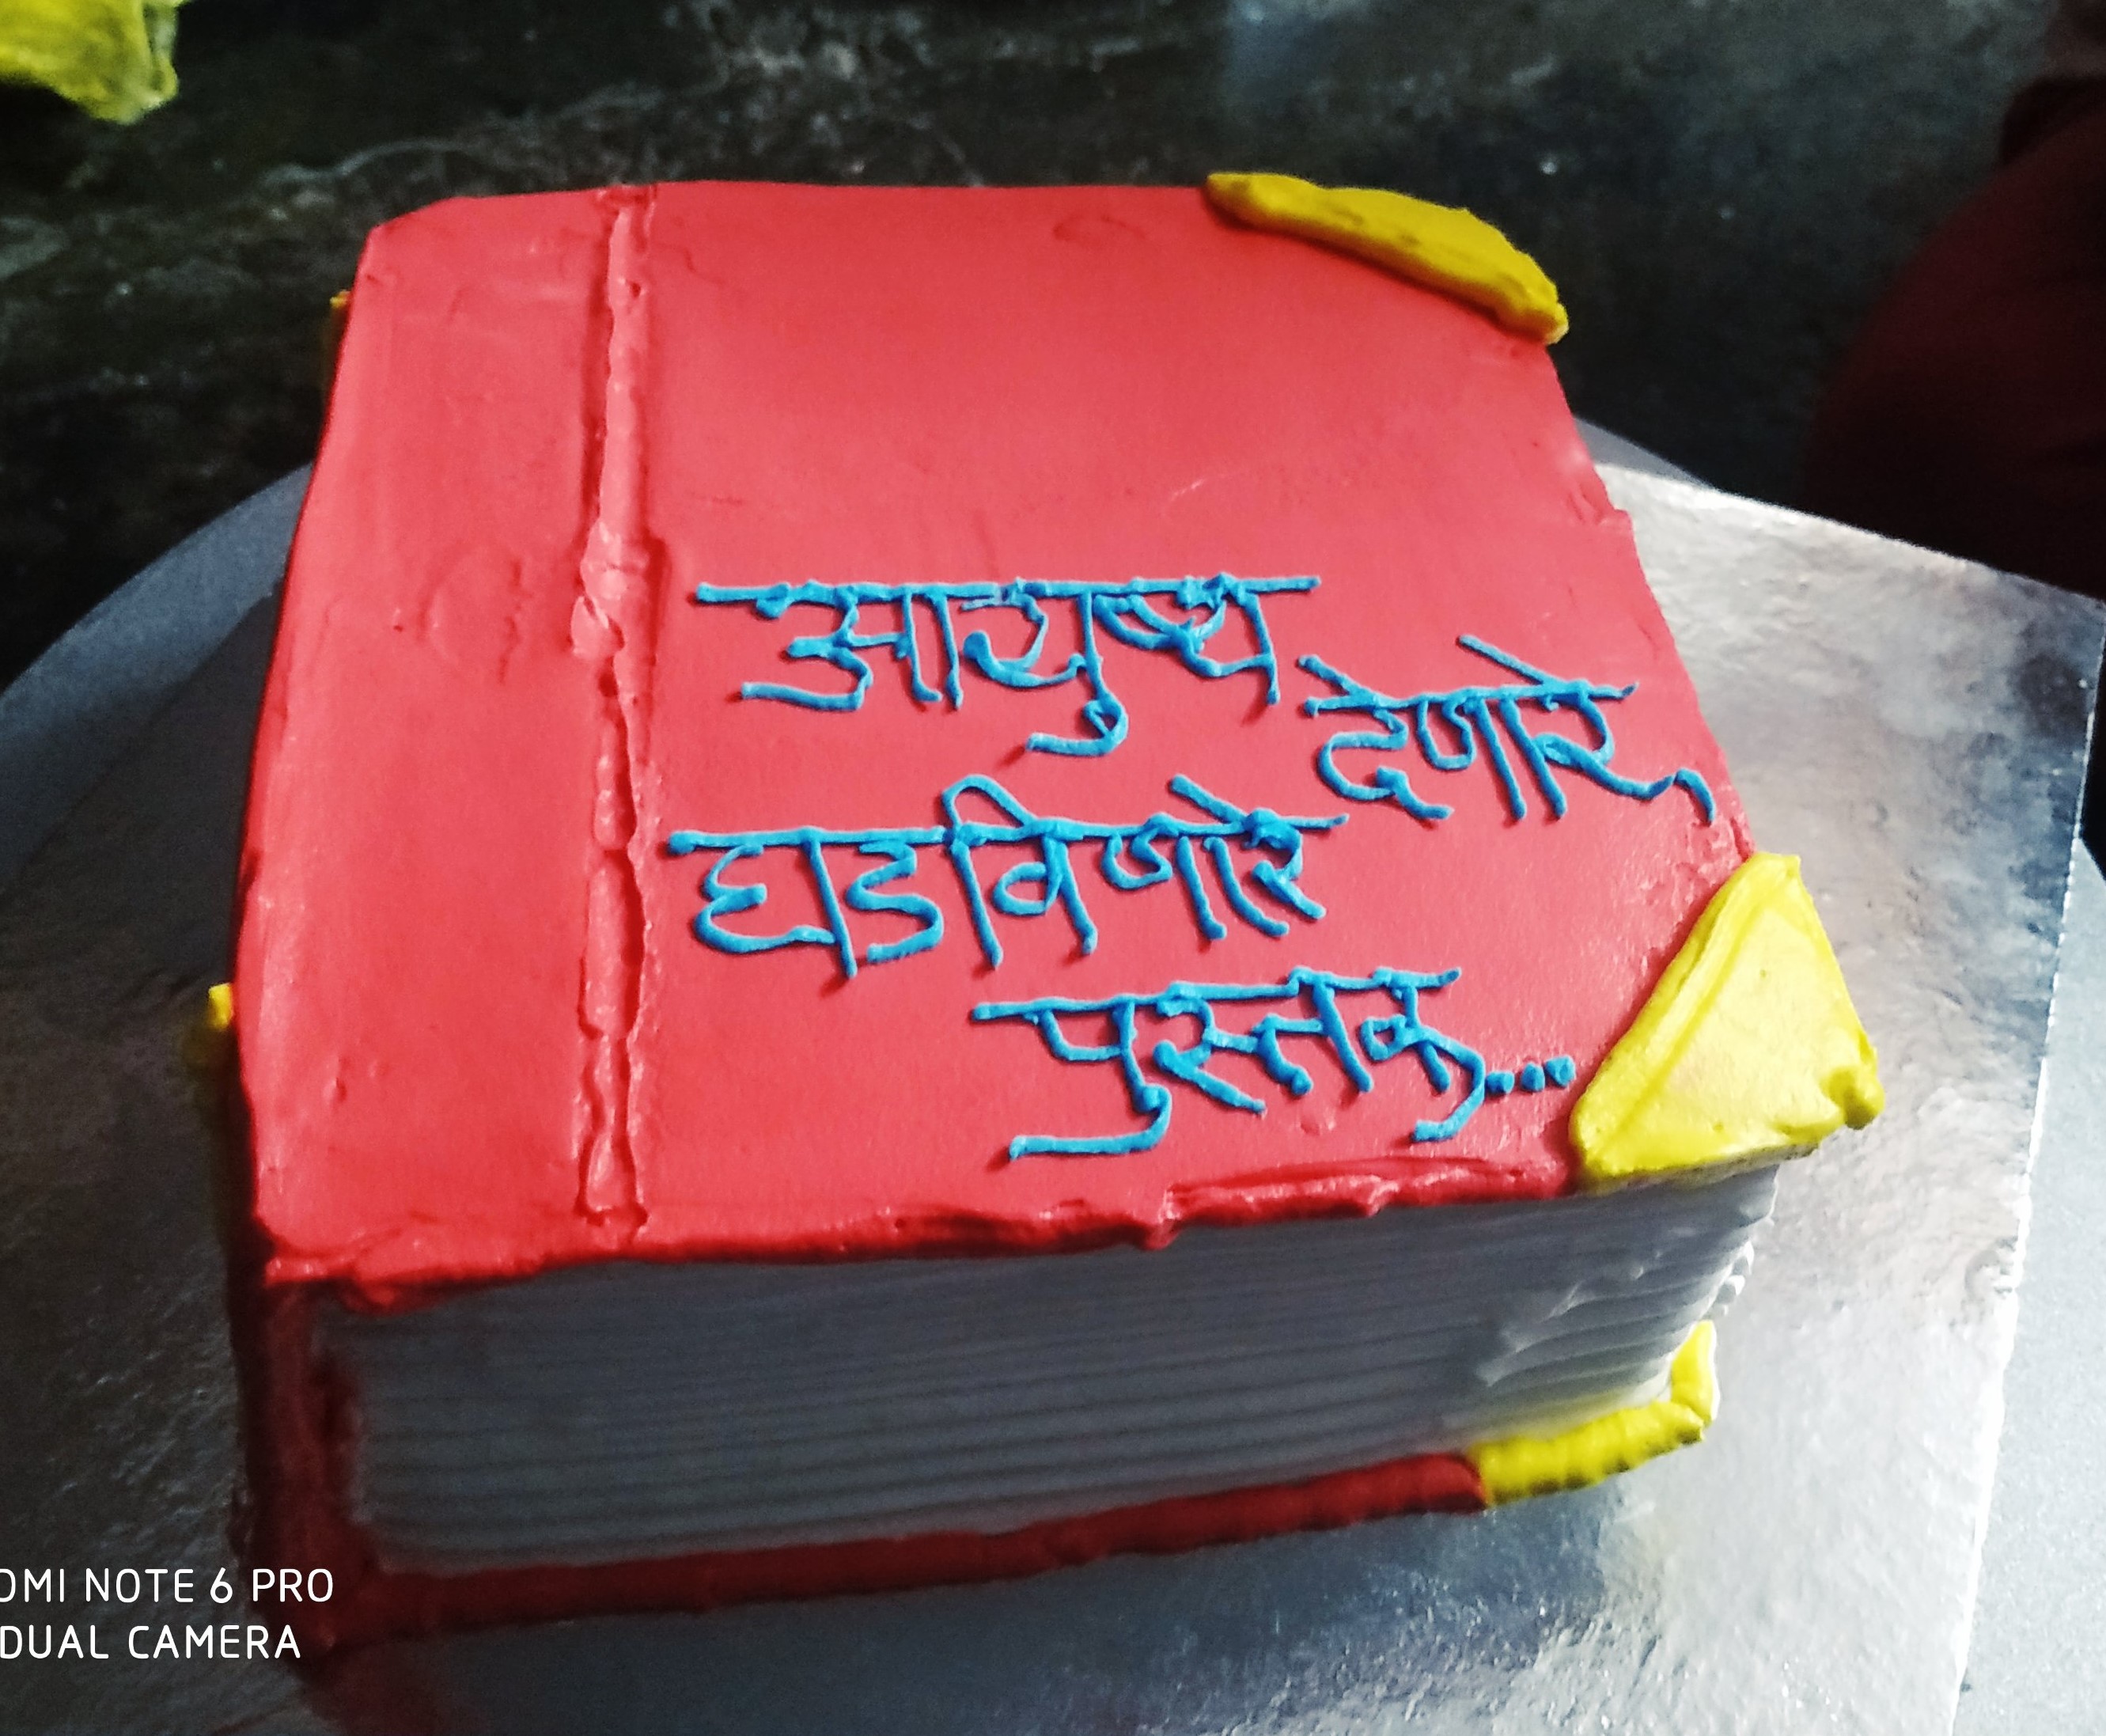 आयुष्य
देणारे,
घडविणारे
पुस्तक...
OMI NOTE 6 PRO
DUAL CAMERA